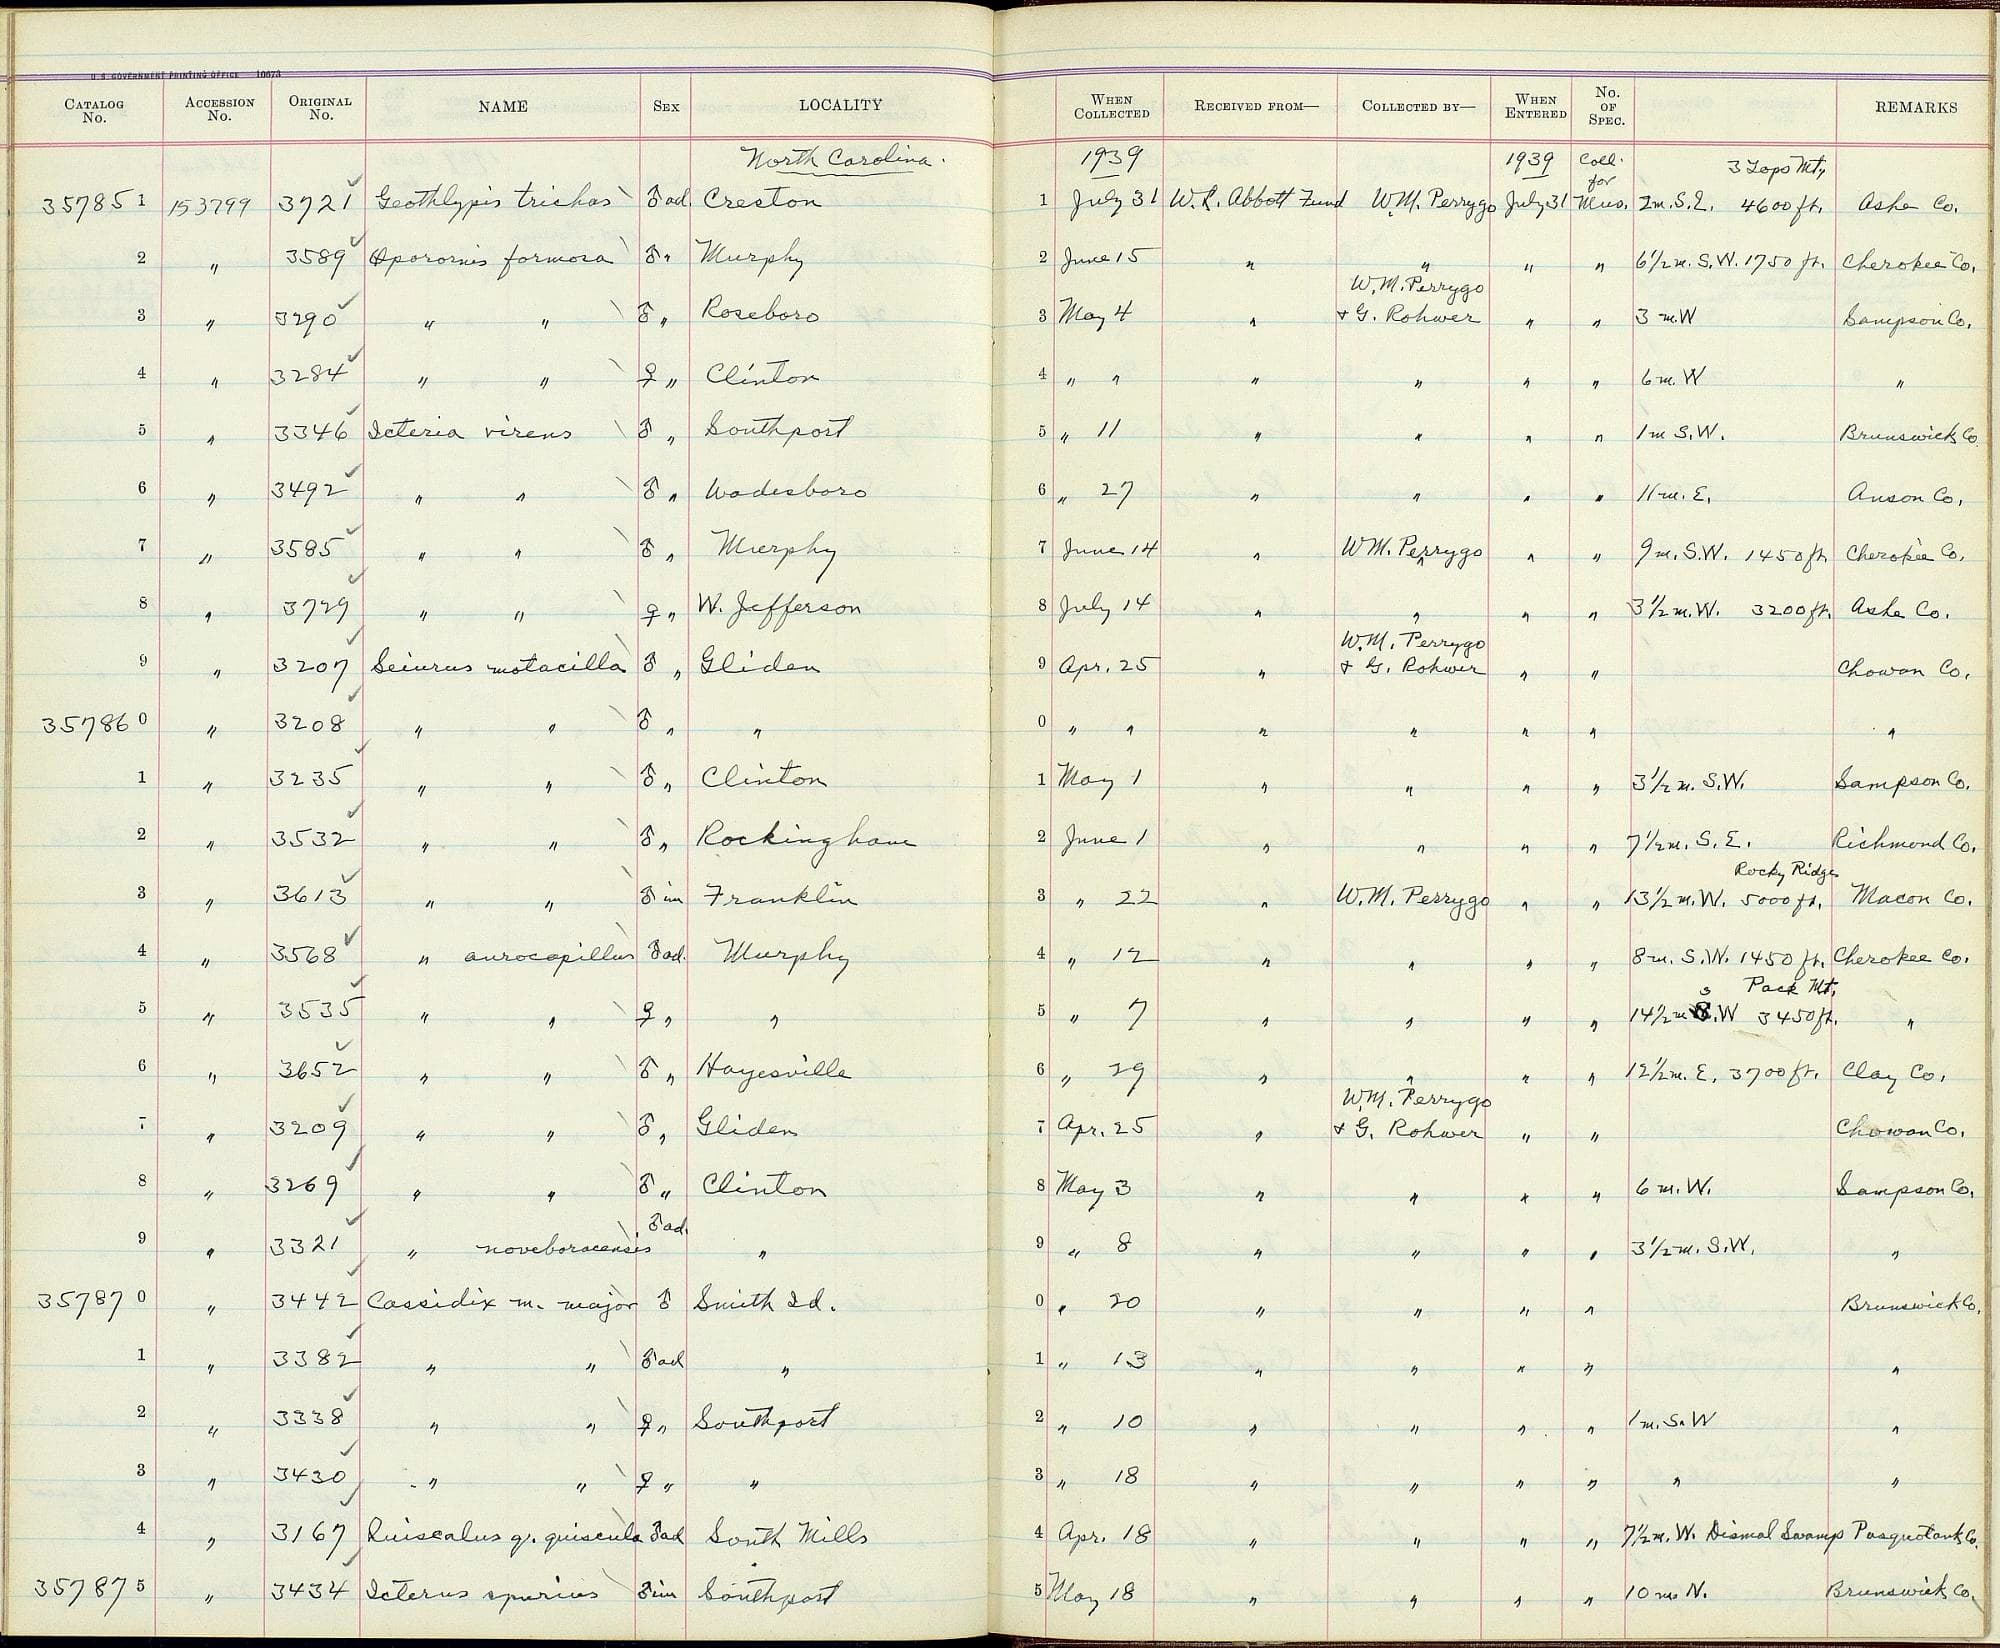 U. S. GOVERNMENT PRINTING OFFICE 10673
CATALOG No. ACCESSION No. ORIGINAL No. NAME SEX LOCALITY WHEN COLLECTED RECEIVED FROM— COLLECTED BY— WHEN ENTERED No. OF SPEC. REMARKS
North Carolina. 1939 1939 Coll. for 3 Tops Mt,
35785 1 153799 3721 ✓ Geothlypis trichas ♂ ad. Creston 1 July 31 W. L. Abbott Fund W.M. Perrygo July 31 Mus. 2m. S.E. 4600 ft. Ashe Co.
2 " 3589 ✓ Oporornis formosa ♂ " Murphy 2 June 15 " " " " 6 1/2 m. S.W. 1750 ft. Cherokee Co.
W.M. Perrygo
3 " 3290 ✓ " " ♂ " Roseboro 3 May 4 " + G. Rohwer " " 3 m. W Sampson Co.
4 " 3284 ✓ " " ♀ " Clinton 4 " " " " " " 6 m. W "
5 " 3346 ✓ Icteria virens ♂ " Southport 5 " 11 " " " " 1 m S.W. Brunswick Co.
6 " 3492 ✓ " " ♂ " Wadesboro 6 " 27 " " " " 11 m. E. Anson Co.
7 " 3585 ✓ " " ♂ " Murphy 7 June 14 " W.M. Perrygo " " 9 m. S.W. 1450 ft. Cherokee Co.
8 " 3729 ✓ " " ♀ " W. Jefferson 8 July 14 " " " " 3 1/2 m. W. 3200 ft. Ashe Co.
W.M. Perrygo
9 " 3207 ✓ Seiurus motacilla ♂ " Gliden 9 Apr. 25 " + G. Rohwer " " Chowan Co.
35786 0 " 3208 ✓ " " ♂ " " 0 " " " " " " "
1 " 3235 ✓ " " ♂ " Clinton 1 May 1 " " " " 3 1/2 m. S.W. Sampson Co.
2 " 3532 ✓ " " ♂ " Rockingham 2 June 1 " " " " 7 1/2 m. S. E. Richmond Co.
Rocky Ridge
3 " 3613 ✓ " " ♂ im Franklin 3 " 22 " W.M. Perrygo " " 13 1/2 m. W. 5000 ft. Macon Co.
4 " 3568 ✓ " aurocapillus ♂ ad. Murphy 4 " 12 " " " " 8 m. S.W. 1450 ft. Cherokee Co.
S Pack Mt,
5 " 3535 ✓ " " ♀ " " 5 " 7 " " " " 14 1/2 m S.W 3450 ft. "
6 " 3652 ✓ " " ♂ " Hayesville 6 " 29 " " " " 12 1/2 m. E. 3700 ft. Clay Co.
W.M. Perrygo
7 " 3209 ✓ " " ♂ " Gliden 7 Apr. 25 " + G. Rohwer " " Chowan Co.
8 " 3269 ✓ " " ♂ " Clinton 8 May 3 " " " " 6 m. W. Sampson Co.
9 " 3321 ✓ " noveboracensis ♂ ad. " 9 " 8 " " " " 3 1/2 m. S.W. "
35787 0 " 3442 ✓ Cassidix m. major ♂ Smith Id. 0 " 20 " " " " Brunswick Co.
1 " 3382 ✓ " " ♂ ad " 1 " 13 " " " " "
2 " 3338 ✓ " " ♀ " Southport 2 " 10 " " " " 1 m. S. W "
3 " 3430 ✓ " " ♀ " " 3 " 18 " " " " " "
4 " 3167 ✓ Quiscalus q. quiscula ♂ ad South Mills 4 Apr. 18 " " " " 7 1/2 m. W. Dismal Swamp Pasquotank Co.
35787 5 " 3434 ✓ Icterus spurius ♂ im Southport 5 May 18 " " " " 10 m. N. Brunswick Co.